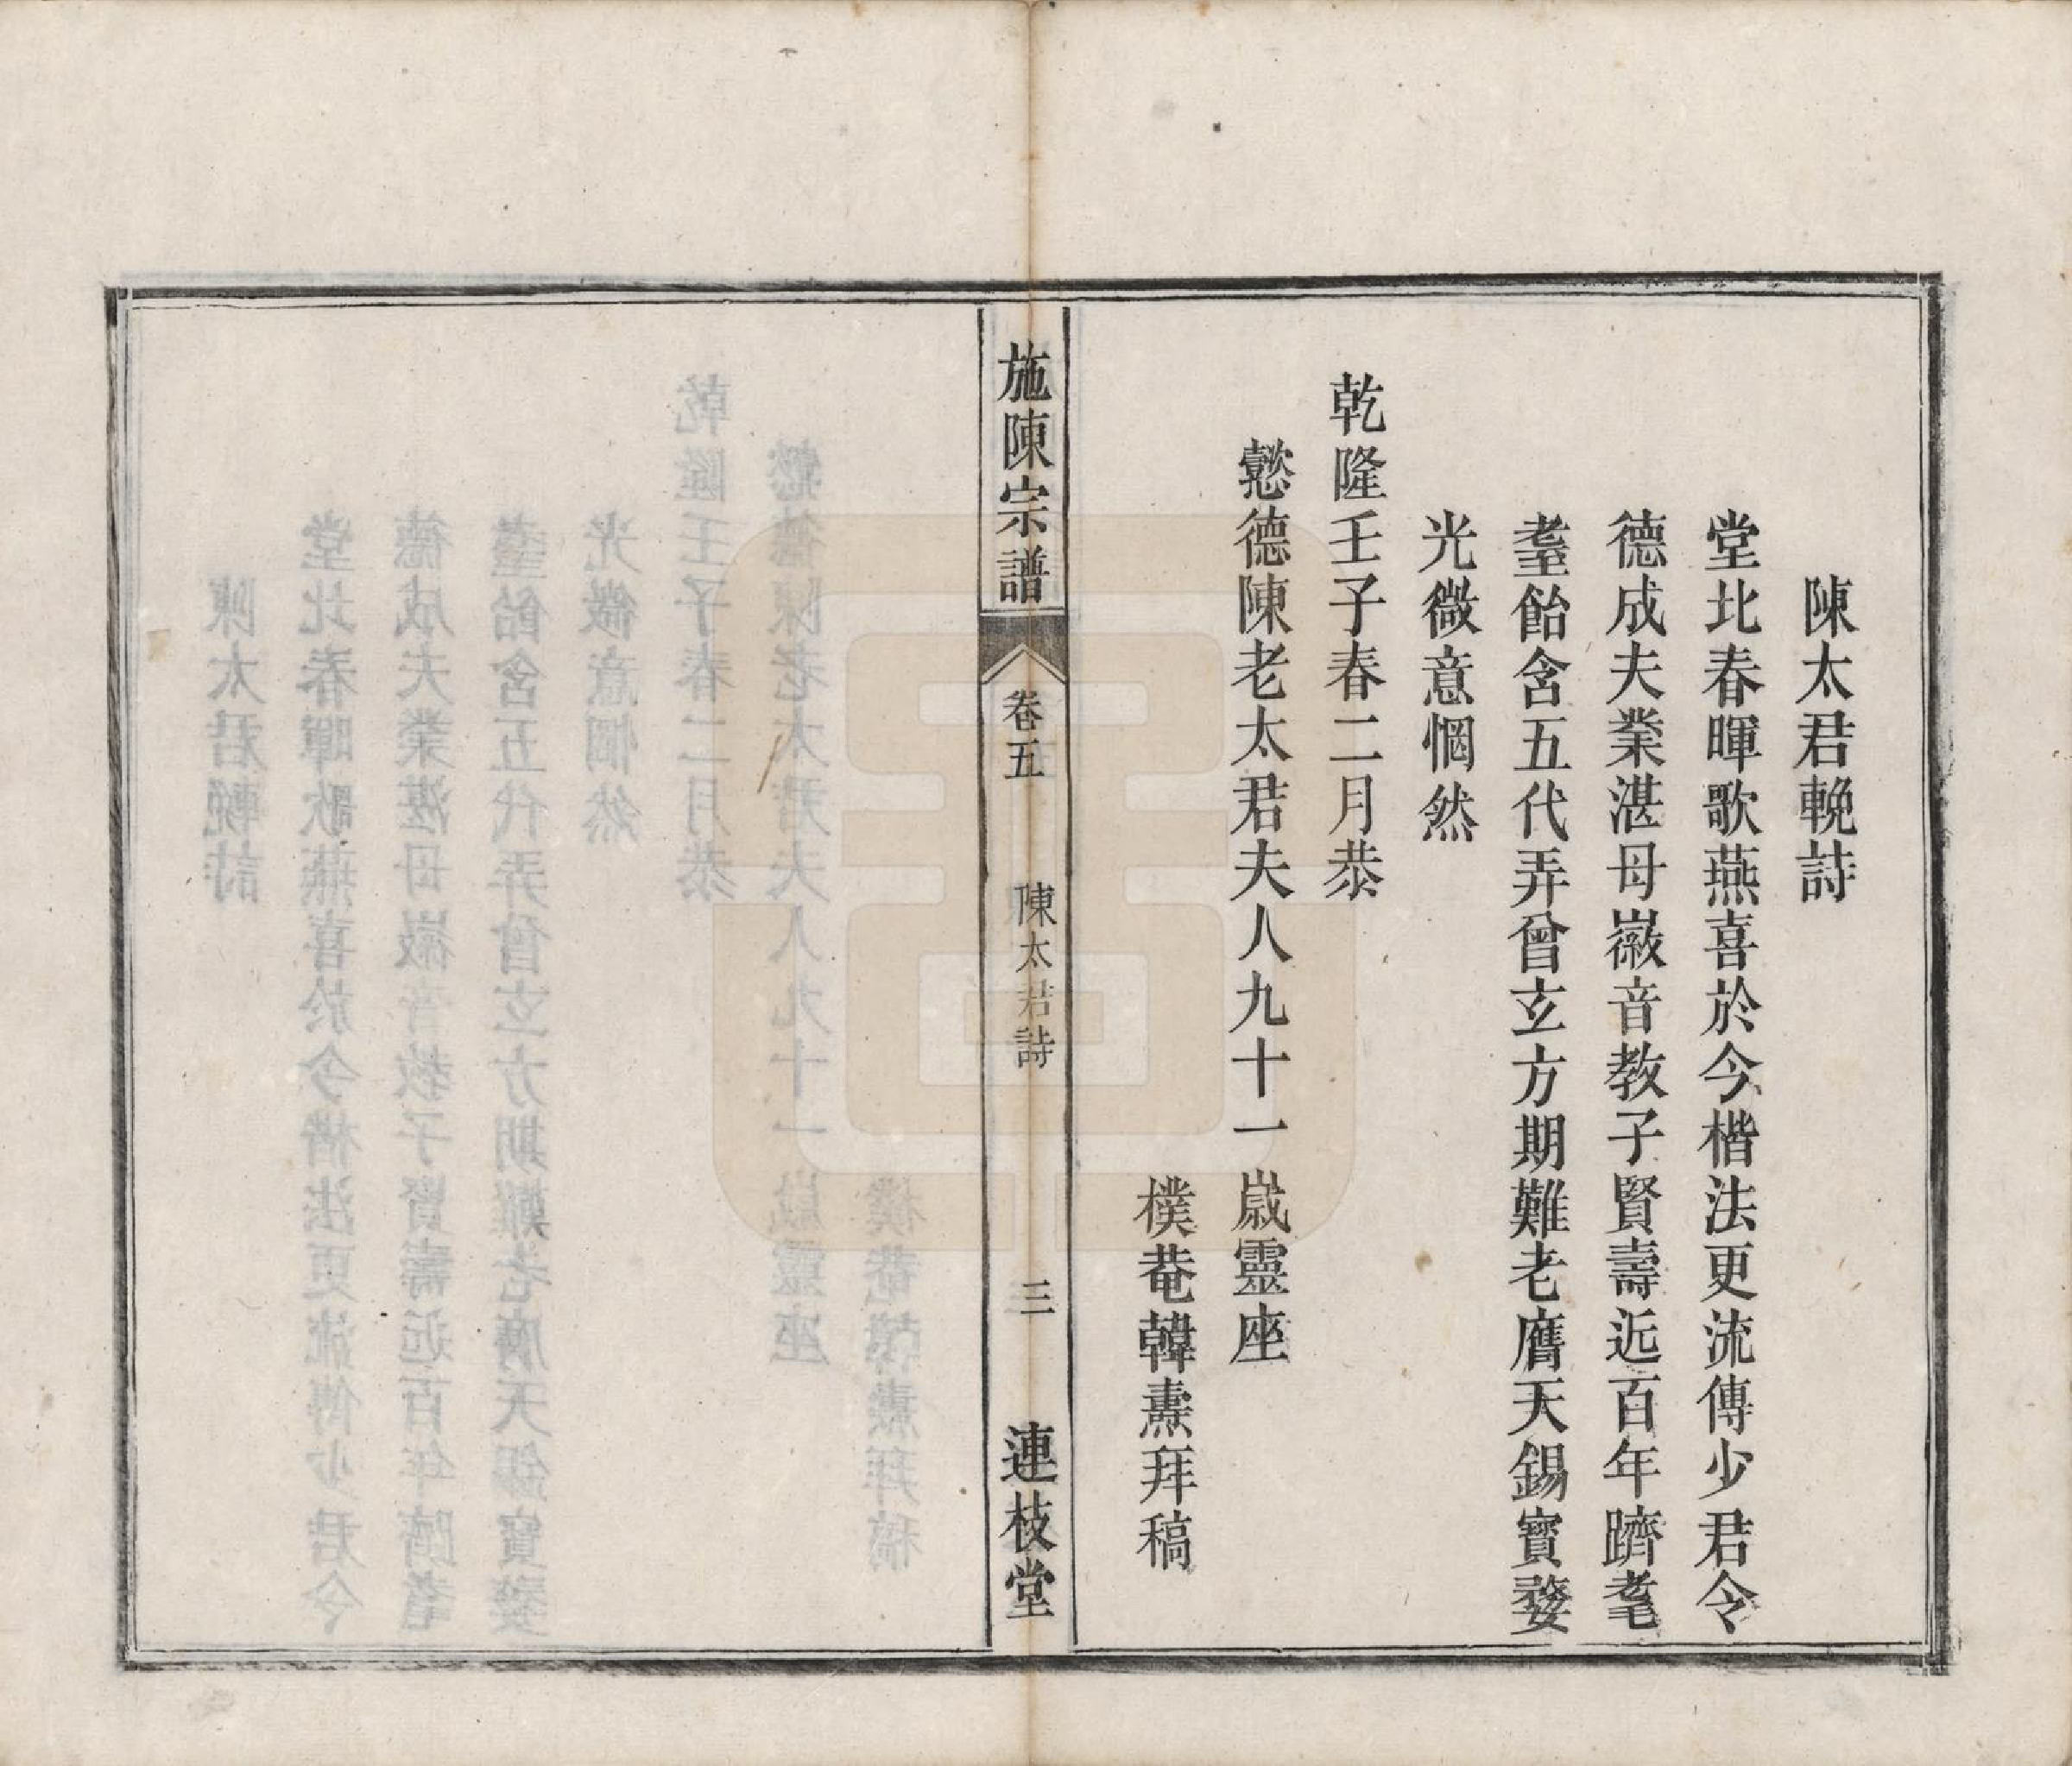 陳太君輓詩
堂北春暉歌燕喜於今楷法更流傳少君令
德成夫業湛母嶶音教子賢壽近百年躋耄
耋飴含五代弄曾玄方期難老膺天錫寳婺
光微意惘然
乾隆壬子春二月恭
懿德陳老太君夫人九十一歲靈座
樸菴韓燾拜稿
施陳宗譜
卷五
陳太君詩
三
連枝堂